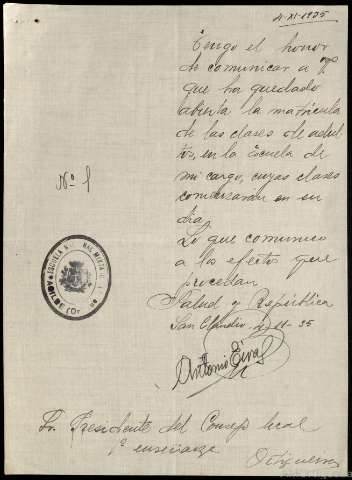 4-XI-1935
Tengo el honor
de comunicar a V.
que ha quedado
abierta la matrícula
de las clases de adul-
tos, en la Escuela de
mi cargo, cuyas clases
comenzarán en su
día.
Lo que comunico
a los efectos que
procedan
Salud y República
San Claudio, 4-11-35
Antonio
Nº 1
ESCUELA MIXTA
Sr. Presidente del Consejo local
1ª enseñanza
Ortigueira